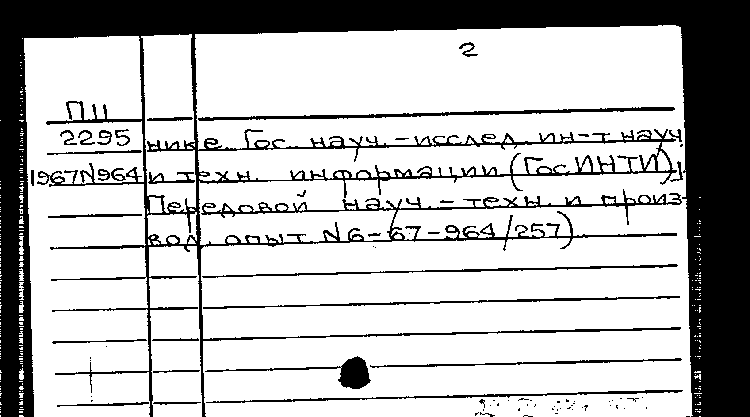 2
П11
2295 нике. Гос. науч.-исслед. ин-т науч
1967N964 и техн. информации (ГосИНТИ).
Передовой науч.-техн. и произ-
вод. опыт N6-67-964/257)